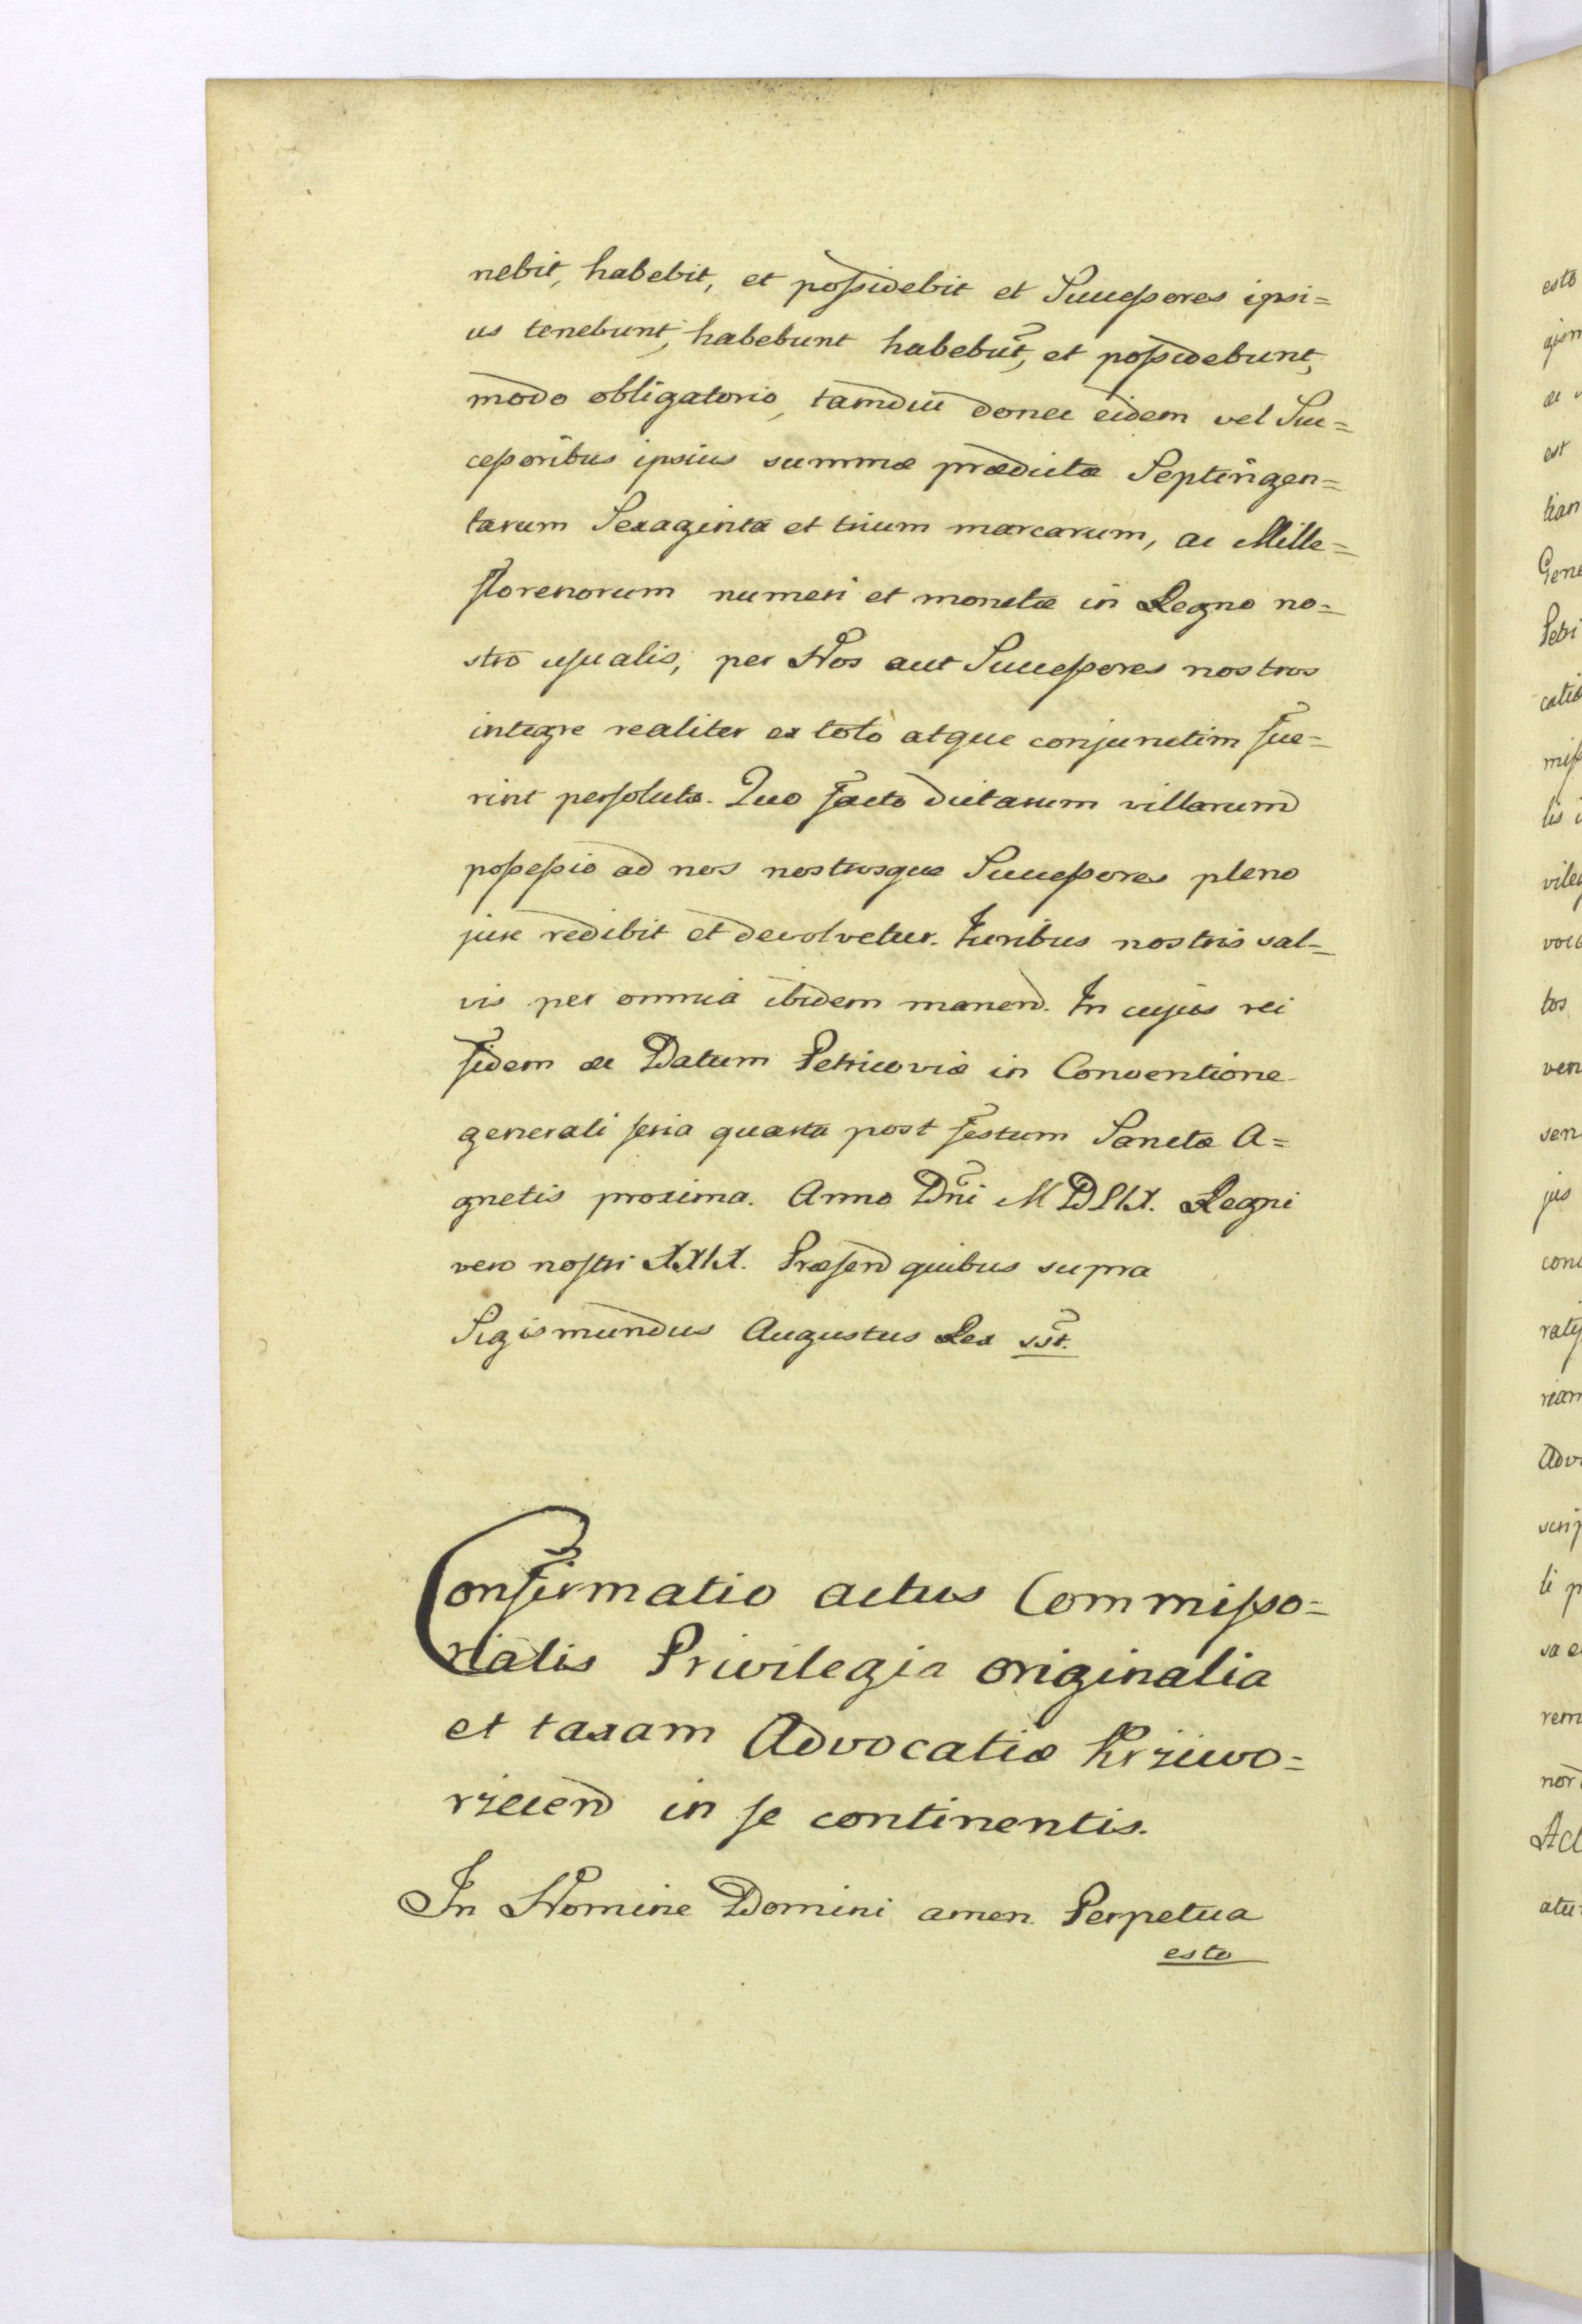 nebit, habebit, et poſsidebit et Succeſsores ipsi=
us tenebunt, habebunt habebut̃, et poſsidebunt,
modo obligatorio, tamdiu donec eidem vel Suc=
ceſsoribus ipsius summæ prædictæ Septingen=
tarum Sexaginta et trium marcarum, ac Mille=
florenorum numeri et monetæ in Regno no=
stro uſualis, per Nos aut Succeſsores nostros
integre realiter ex toto atque conjunctim fue=
rint perſoluta. Quo facto dictarum villarum
poſseſsio ad nos nostrosque Succeſsores pleno
jure redibit et devolvetur. Juribus nostris sal=
vis per omnia ibidem manend. In cujus rei
fidem &c Datum Petricoviæ in Conventione
generali feria quarta post festum Sanctæ A=
gnetis proxima. Anno Dñi MDLIX. Regni
vero noſtri XXIX. Præſend quibus supra
Sigismundus Augustus Rex sst̃.
Confirmatio actus Commiſso=
rialis Privilegia originalia
et taxam Advocatiæ Krziwo=
rzecend in ſe continentis.
In Nomine Domini amen. Perpetua
esto